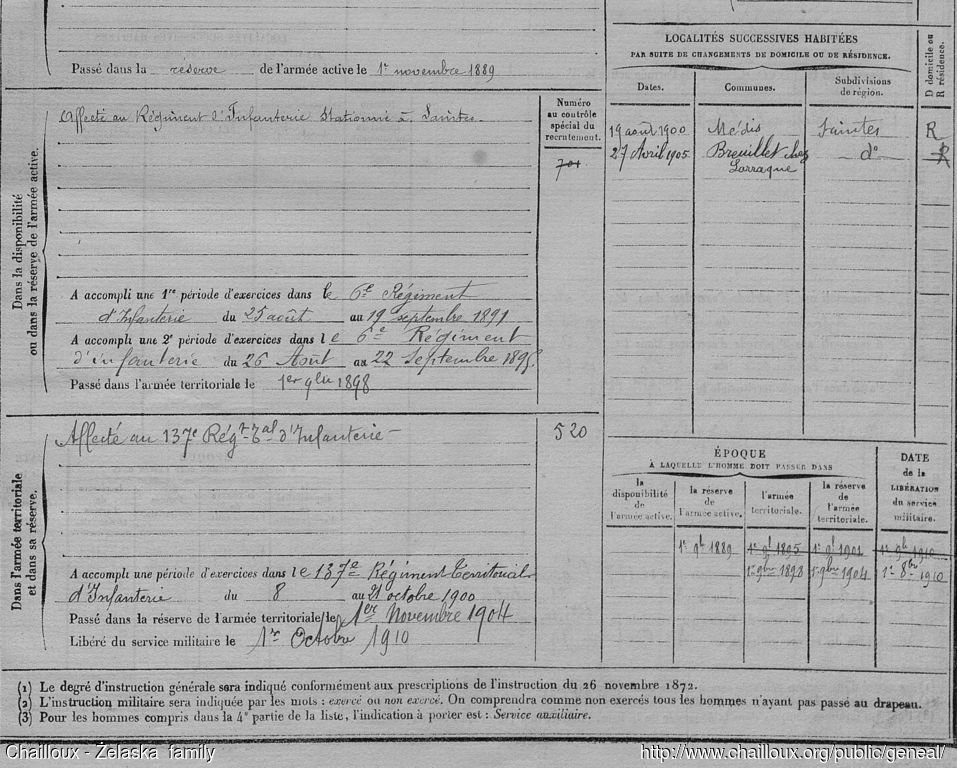 Passé dans la réserve de l'armée active le 1er novembre 1889
Dans la disponibilité
ou dans la réserve de l'armée active.
Affecté au Régiment d'Infanterie Stationné à Saintes
Numéro
au contrôle
spécial du
recrutement.
701
A accompli une 1re période d'exercices dans le 6e Régiment
d'Infanterie du 25 août au 19 septembre 1891
A accompli une 2e période d'exercices dans le 6e Régiment
d'infanterie du 26 Août au 22 Septembre 1895
Passé dans l'armée territoriale le 1er 9bre 1898
Dans l'armée territoriale
et dans sa réserve.
Affecté au 137e Régt Tal d'Infanterie
520
A accompli une période d'exercices dans le 137e Régiment Territorial
d'Infanterie du 8 au 21 octobre 1900
Passé dans la réserve de l'armée territoriale le 1er Novembre 1904
Libéré du service militaire le 1er Octobre 1910
LOCALITÉS SUCCESSIVES HABITÉES
PAR SUITE DE CHANGEMENTS DE DOMICILE OU DE RÉSIDENCE.
D domicile ou
R résidence.
Dates. Communes. Subdivisions
de région.
19 août 1900 Médis Saintes R
27 Avril 1905 Breuillet chez d° R
Larraque
ÉPOQUE
À LAQUELLE L'HOMME DOIT PASSER DANS
DATE
de la
LIBÉRATION
du service
militaire.
la
disponibilité
de
l'armée active.
la réserve
de
l'armée active.
l'armée
territoriale.
la réserve
de
l'armée
territoriale.
1er 9b 1889 1er 9b 1895 1er 9b 1901 1er 9b 1910
1er 9bre 1898 1er 9bre 1904 1er 8bre 1910
(1) Le degré d'instruction générale sera indiqué conformément aux prescriptions de l'instruction du 26 novembre 1872.
(2) L'instruction militaire sera indiquée par les mots : exercé ou non exercé. On comprendra comme non exercés tous les hommes n'ayant pas passé au drapeau.
(3) Pour les hommes compris dans la 4e partie de la liste, l'indication à porter est : Service auxiliaire.
Chailloux - Żelaska family
http://www.chailloux.org/public/geneal/